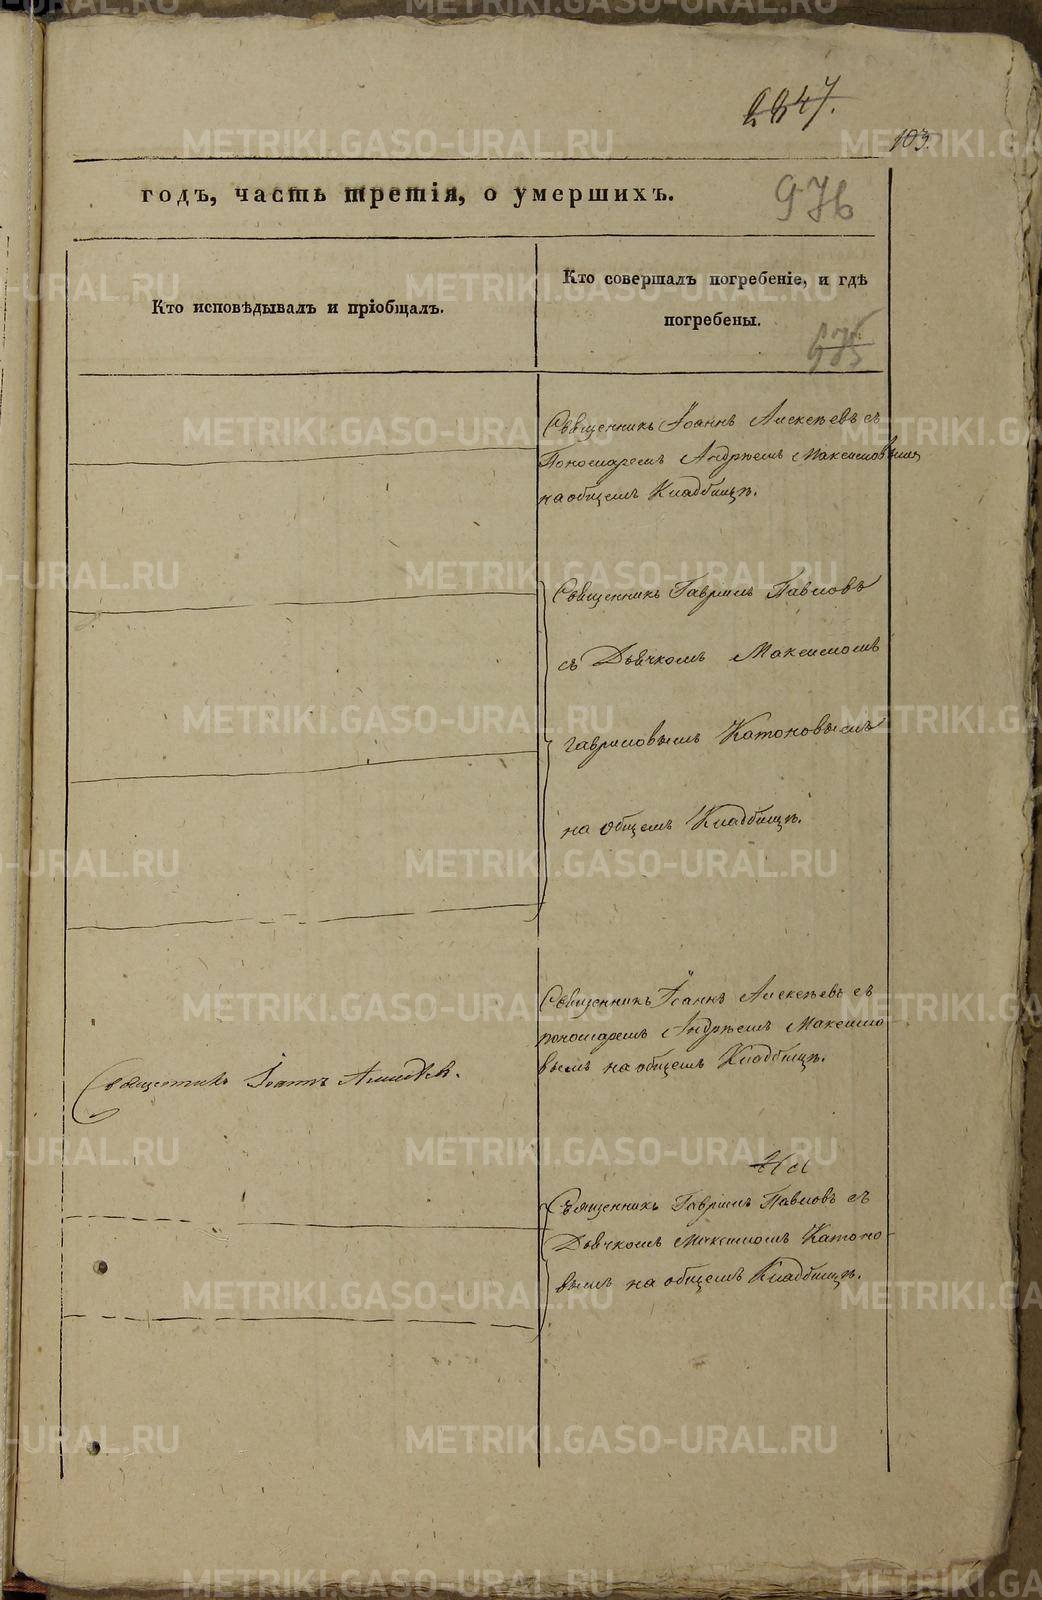 2347.
103.
годъ, часть третія, о умершихъ.
976
Кто исповѣдывалъ и пріобщалъ.
Кто совершалъ погребеніе, и гдѣ
погребены.
675
Священникъ Іоаннъ Алексѣевъ съ
Пономаремъ Андрѣемъ Максимовымъ
на общемъ Кладбищѣ.
Священникъ Гавріилъ Павловъ
съ Дьячкомъ Максимомъ
Гавриловымъ Катоновымъ
на общемъ Кладбищѣ.
Священникъ Іоаннъ Алексѣевъ съ
пономаремъ Андрѣемъ Максимо
вымъ на общемъ Кладбищѣ.
Священникъ Іоаннъ Алексѣевъ.
Священникъ Гавріилъ Павловъ съ
Дьячкомъ Максимомъ Катоно-
вымъ на общемъ Кладбищѣ.
METRIKI.GASO-URAL.RU